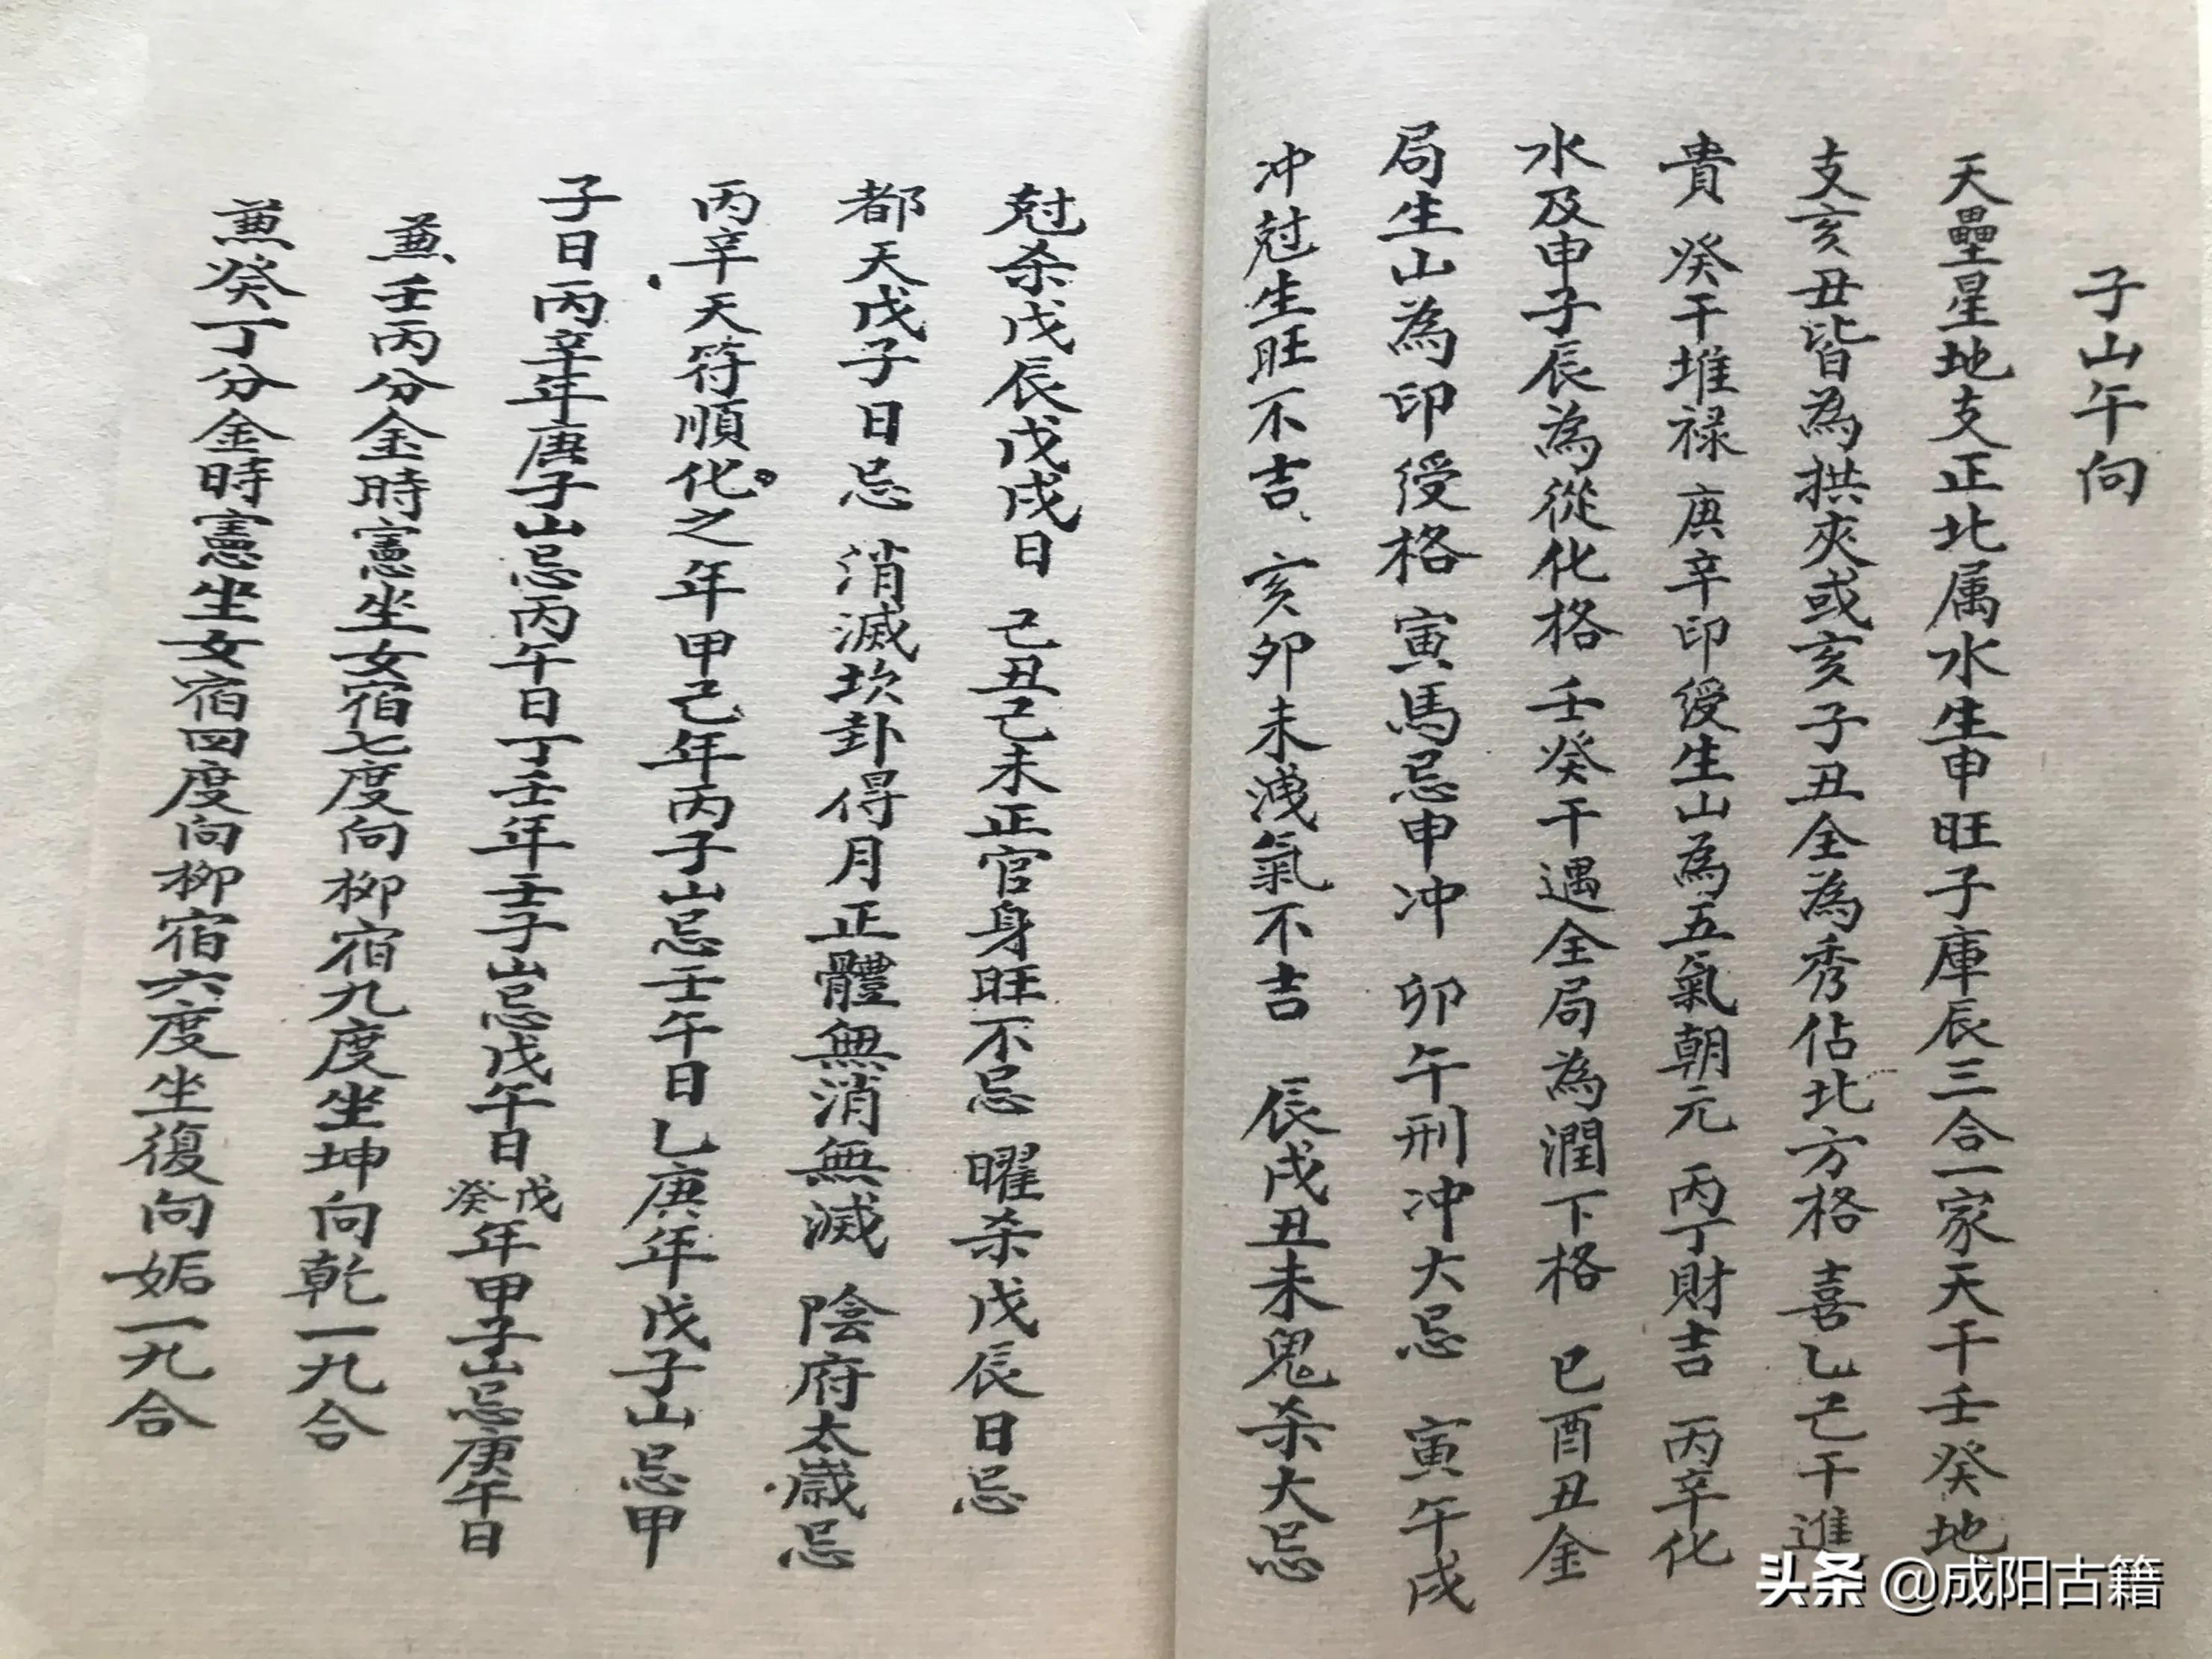 子山午向
天壘星地支正北属水生申旺子庫辰三合一家天干壬癸地
支亥丑皆為拱夾或亥子丑全為秀佔北方格 喜乚己干進
貴 癸干堆禄 庚辛印綬生山為五氣朝元 丙丁財吉 丙辛化
水及申子辰為從化格 壬癸干遇全局為潤下格 巳酉丑金
局生山為印綬格 寅馬忌申冲 卯午刑冲大忌 寅午戌
冲尅生旺不吉、亥卯未洩氣不吉 辰戌丑未鬼杀大忌
尅杀戊辰戊戌日 己丑己未正官身旺不忌 曜杀戊辰日忌
都天戊子日忌 消滅坎卦得月正體無消無滅 陰府太歲忌
丙辛、天符順化。之年甲己年丙子山忌壬午日乚庚年戊子山忌甲
子日丙辛年庚子山忌丙午日丁壬年壬子山忌戊午日戊癸年甲子山忌庚午日
兼壬丙分金時憲坐女宿七度向柳宿九度坐坤向乾一九合
兼癸丁分金時憲坐女宿四度向柳宿六度坐復向姤一九合
头条 @成阳古籍